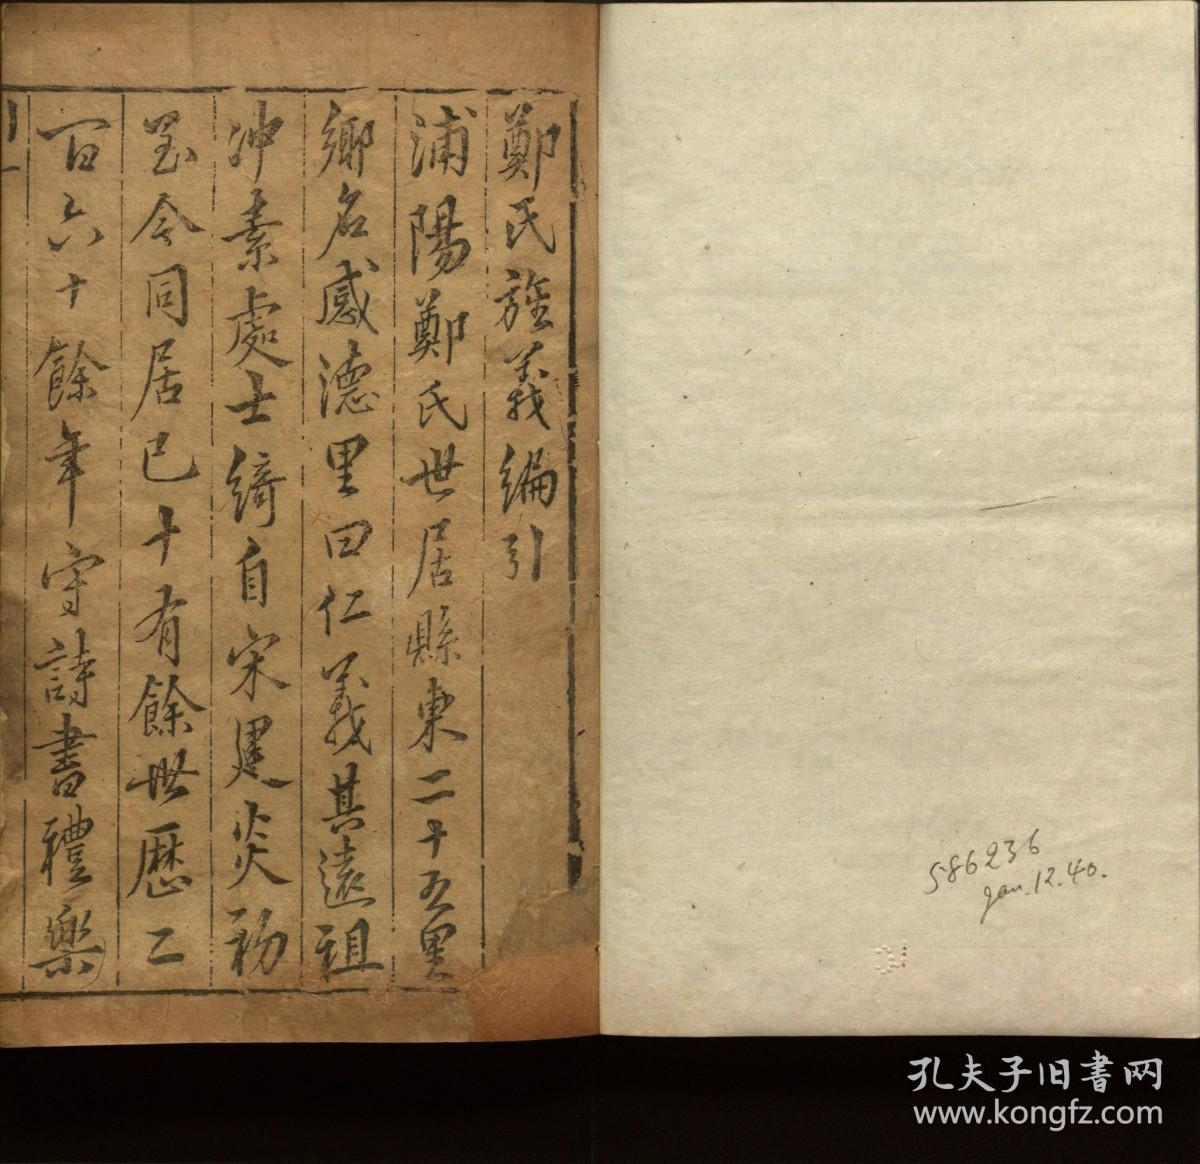 鄭氏旌義編引
浦陽鄭氏世居縣東二十五里
鄉名感德里曰仁義其遠祖
冲素處士綺自宋建炎初
至今同居已十有餘世歷二
百六十餘年守詩書禮樂
586236
Jan. 12. 40.
孔夫子旧书网
www.kongfz.com